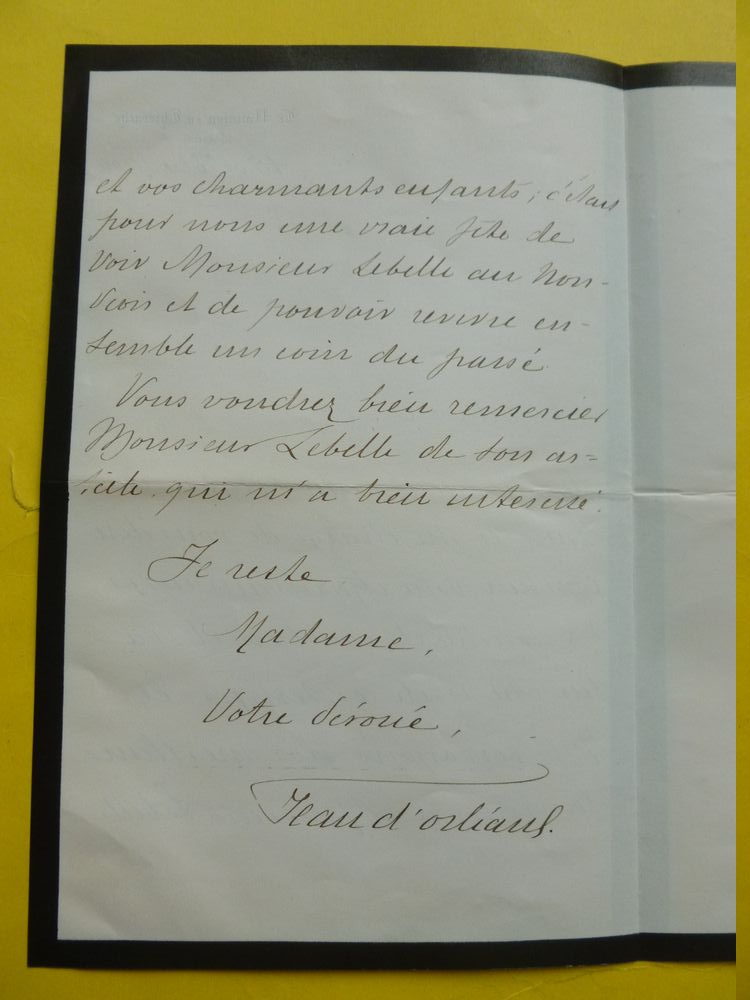 et vos charmants enfants ; c'était
pour nous une vraie fête de
voir Monsieur Lebelle au Nou-
vion et de pouvoir revivre en-
semble un coin du passé.
Vous voudrez bien remercier
Monsieur Lebelle de son ar-
ticle qui m'a bien intéressé.
Je reste
Madame,
Votre dévoué,
Jean d'orléans.